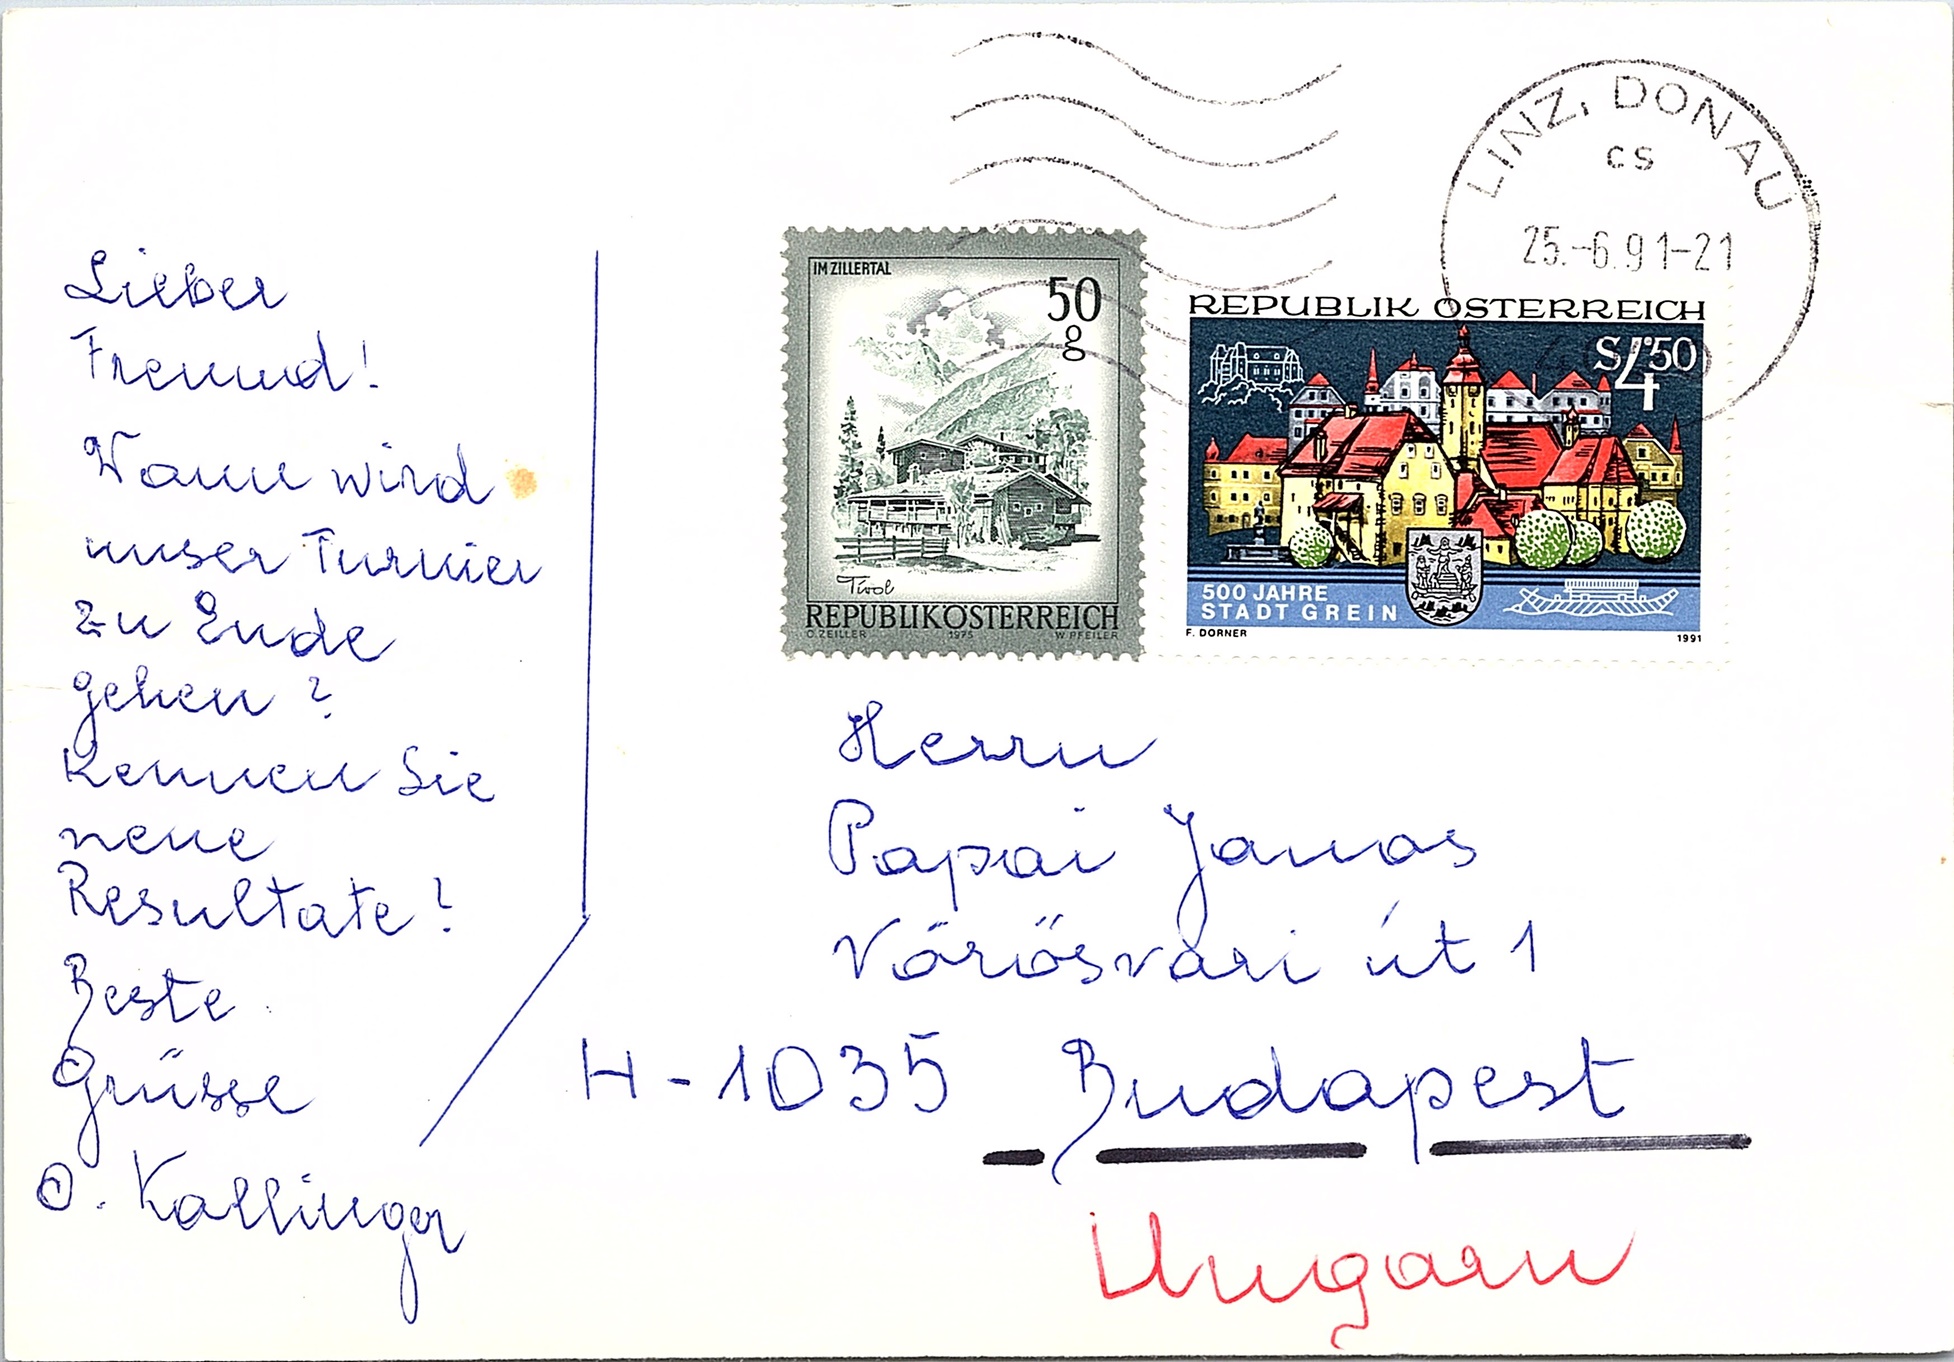 Lieber
Freund!
Wann wird
unser Turnier
zu Ende
gehen?
Kennen Sie
neue
Resultate?
Beste
Grüsse
O. Kallinger
LINZ, DONAU
cs
25.-6.91-21
IM ZILLERTAL
50
g
Tirol
REPUBLIK ÖSTERREICH
O. ZEILLER 1975 W. PFEILER
REPUBLIK ÖSTERREICH
S 4.50
500 JAHRE
STADT GREIN
F. DORNER 1991
Herrn
Papai Janos
Vörösvari út 1
H-1035 Budapest
Ungarn